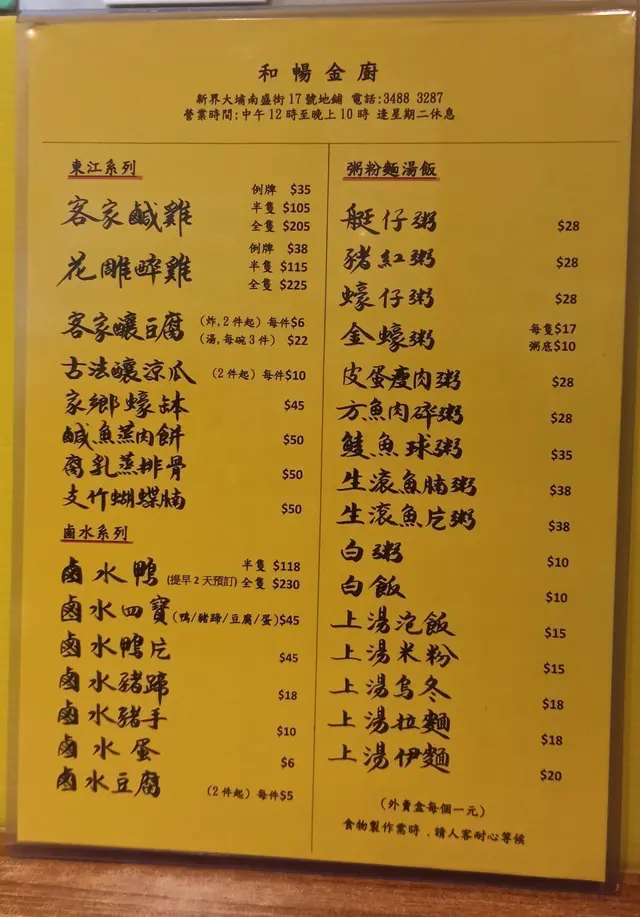 和暢金廚
新界大埔南盛街17號地鋪 電話:3488 3287
營業時間:中午12時至晚上10時 逢星期二休息
東江系列
客家鹹雞 例牌 $35
半隻 $105
全隻 $205
花雕醉雞 例牌 $38
半隻 $115
全隻 $225
客家釀豆腐 (炸,2件起) 每件$6
(湯,每碗3件) $22
古法釀涼瓜 (2件起) 每件$10
家鄉蠔缽 $45
鹹魚蒸肉餅 $50
腐乳蒸排骨 $50
支竹蝴蝶腩 $50
鹵水系列
鹵水鴨 半隻 $118
(提早2天預訂) 全隻 $230
鹵水四寶 (鴨/豬蹄/豆腐/蛋) $45
鹵水鴨片 $45
鹵水豬蹄 $18
鹵水豬手 $10
鹵水蛋 $6
鹵水豆腐 (2件起) 每件$5
粥粉麵湯飯
艇仔粥 $28
豬紅粥 $28
蠔仔粥 $28
金蠔粥 每隻$17
粥底$10
皮蛋瘦肉粥 $28
方魚肉碎粥 $28
鯪魚球粥 $35
生滾魚腩粥 $38
生滾魚片粥 $38
白粥 $10
白飯 $10
上湯泡飯 $15
上湯米粉 $15
上湯烏冬 $18
上湯拉麵 $18
上湯伊麵 $20
(外賣盒每個一元)
食物製作需時﹐請人客耐心等候